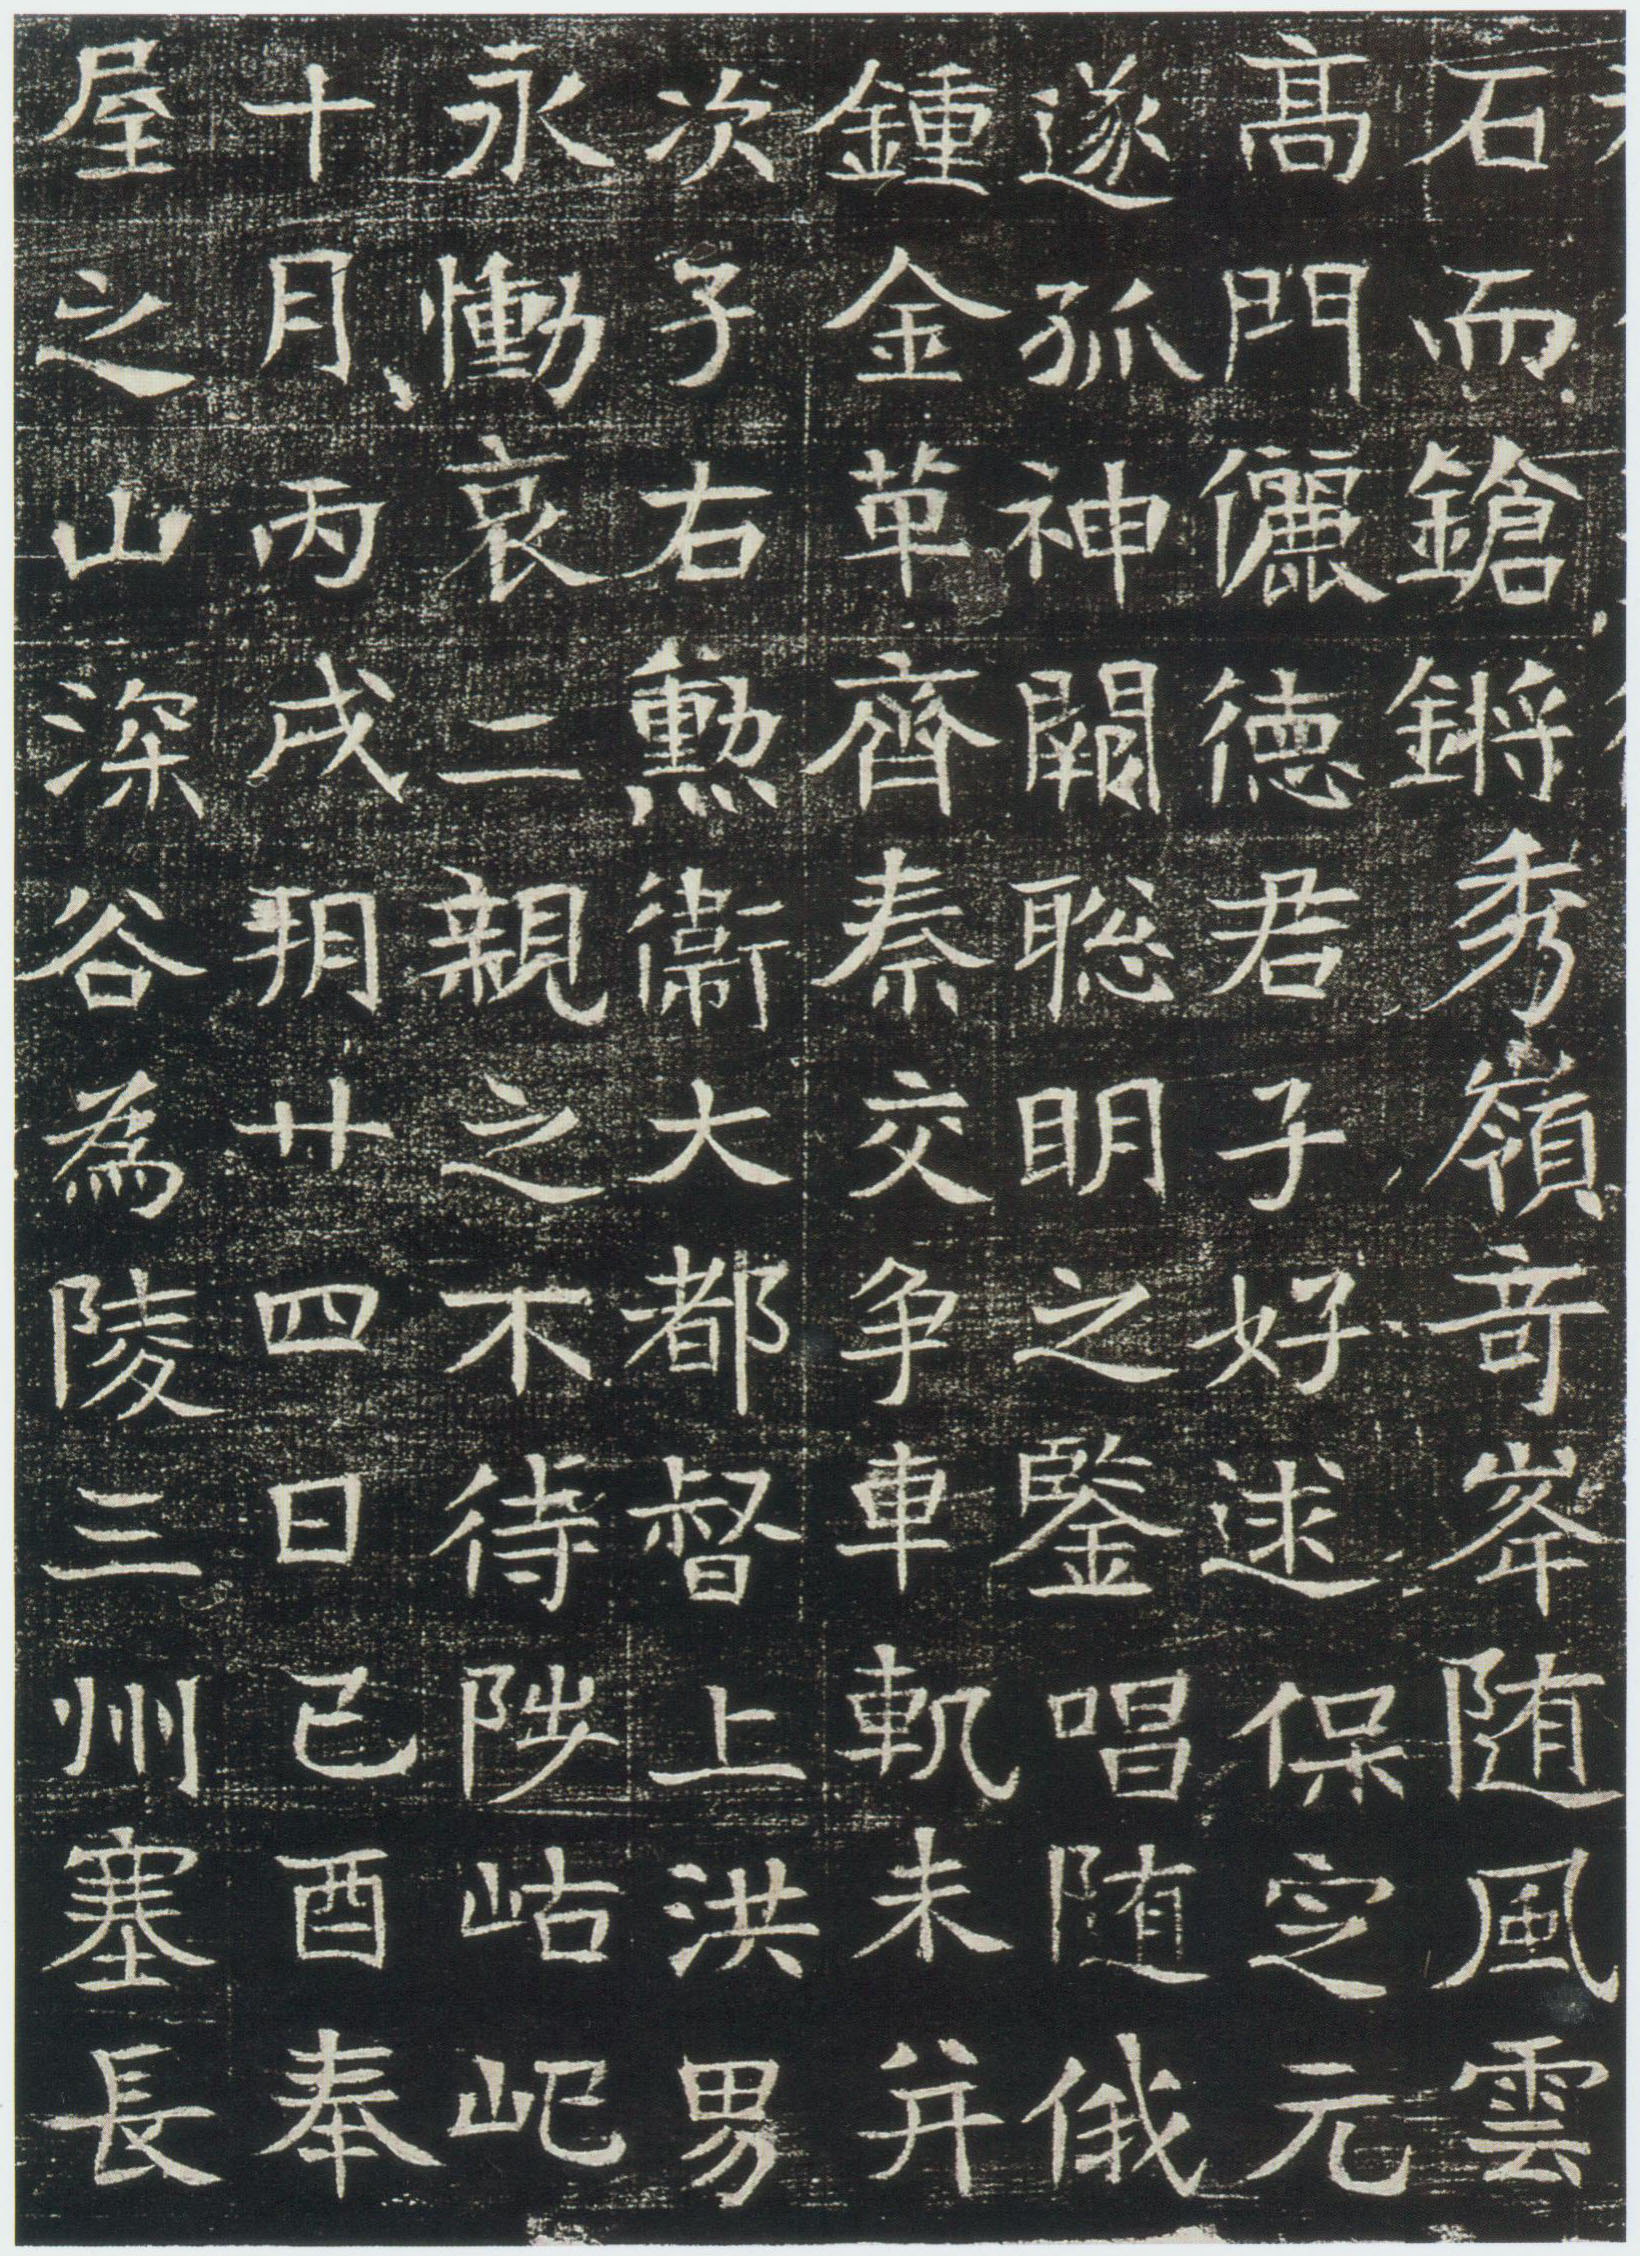 石而鎗鏘秀嶺竒峯随風雲
髙門儷德君子好逑保定元
遂孤神闕聡明之鑒唱随俄
鍾金革齊秦交争車軌未并
次子右勲衞大都督上洪男
永慟哀二親之不待陟岵屺
十月丙戌朔廿四日己酉奉
屋之山深谷為陵三州塞長